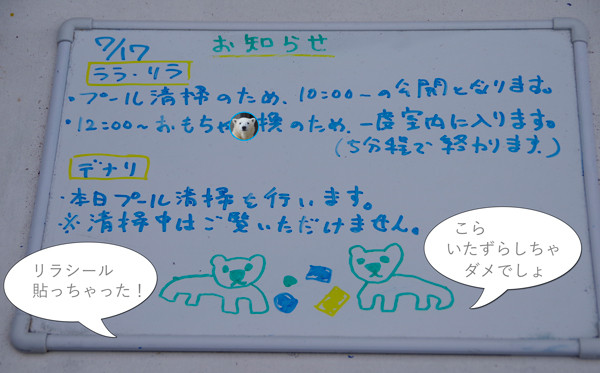 7/17 お知らせ
ララ・リラ
・プール清掃のため、10:00〜の公開となります。
・12:00〜おもちゃ 換のため、一度室内に入ります。
(5分程で終わります。)
デナリ
・本日プール清掃を行います。
※清掃中はご覧いただけません。
リラシール
貼っちゃった！
こら
いたずらしちゃ
ダメでしょ